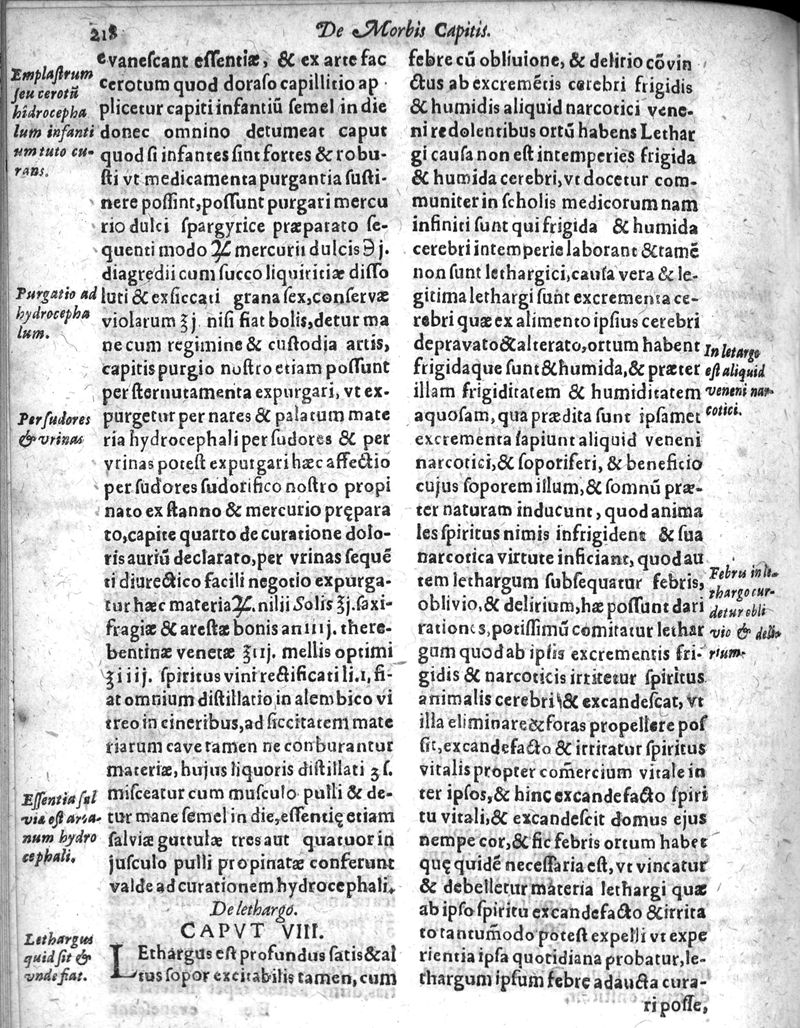 218
De Morbis Capitis.
Emplastrum
seu cerotũ
hidrocepha
lum infanti
um tuto cu-
rans.
Purgatio ad
hydrocepha
lum.
Per sudores
& vrinas
Essentia sal
viæ est arca-
num hydro
cephali.
Lethargus
quid sit &
vnde fiat.
evanescant essentiæ, & ex arte fac
cerotum quod doraso capillitio ap
plicetur capiti infantiũ semel in die
donec omnino detumeat caput
quod si infantes sint fortes & robu-
sti vt medicamenta purgantia susti-
nere possint, possunt purgari mercu
rio dulci spargyrice præparato se-
quenti modo ♃ mercurii dulcis ℈ j.
diagredii cum succo liquiritiæ disso
luti & exsiccati grana sex, conservæ
violarum ʒ j. nisi fiat bolis, detur ma
ne cum regimine & custodja artis,
capitis purgio nostro etiam possunt
per sternutamenta expurgari, vt ex-
purgetur per nares & palatum mate
ria hydrocephali per sudores & per
vrinas potest expurgari hæc affectio
per sudores sudorifico nostro propi
nato ex stanno & mercurio prępara
to, capite quarto de curatione dolo-
ris auriũ declarato, per vrinas sequẽ
ti diurectico facili negotio expurga-
tur hæc materia ♃. nilji Solis ℥j. saxi-
fragiæ & arestæ bonis an iiij. there-
bentinæ venetæ ℥iij. mellis optimi
℥iiij. spiritus vini rectificati li.1, fi-
at omnium distillatio in alembico vi
treo in cineribus, ad siccitatem mate
riarum cave tamen ne conburantur
materiæ, hujus liquoris distillati ʒ s.
misceatur cum musculo pulli & de-
tur mane semel in die, essentię etiam
salviæ guttulæ tres aut quatuor in
jusculo pulli propinatæ conferunt
valde ad curationem hydrocephali.
De lethargo.
CAPVT VIII.
LEthargus est profundus satis & al
tus sopor excitabilis tamen, cum
febre cũ obliuione, & delirio cõvin
ctus ab excremẽtis cerebri frigidis
& humidis aliquid narcotici vene-
ni redolentibus ortũ habens Lethar
gi causa non est intemperies frigida
& humida cerebri, vt docetur com-
muniter in scholis medicorum nam
infiniti sunt qui frigida & humida
cerebri intemperie laborant & tamẽ
non sunt lethargici, causa vera & le-
gitima lethargi sunt excrementa ce-
rebri quæ ex alimento ipsius cerebri
depravato & alterato, ortum habent
frigidaque sunt & humida, & præter
illam frigiditatem & humiditatem
aquosam, qua prædita sunt ipsamet
excrementa sapiunt aliquid veneni
narcotici, & soporiferi, & beneficio
cujus soporem illum, & somnũ præ-
ter naturam inducunt, quod anima
les spiritus nimis infrigident & sua
narcotica virtute inficiant, quod au
tem lethargum subsequatur febris,
oblivio, & delirium, hæ possunt dari
rationes, potissimũ comitatur lethar
gum quod ab ipsis excrementis fri-
gidis & narcoticis irritetur spiritus
animalis cerebri & excandescat, vt
illa eliminare & foras propellere pos
sit, excandefacto & irritatur spiritus
vitalis propter com̃ercium vitale in
ter ipsos, & hinc excandefacto spiri
tu vitali, & excandescit domus ejus
nempe cor, & sic febris ortum habet
quę quidẽ necessaria est, vt vincatur
& debelletur materia lethargi quæ
ab ipso spiritu excandefacto & irrita
to tantum̃odo potest expelli vt expe
rientia ipsa quotidiana probatur, le-
thargum ipsum febre adaucta cura-
ri posse,
In letargo
est aliquid
veneni nar-
cotici.
Febris in le-
thargo cur-
detur obli
vio & deli-
rium.